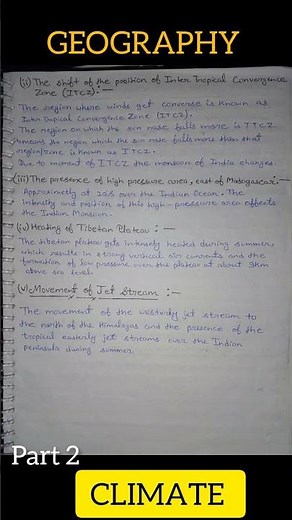 GEOGRAPHY
(ii) The shift of the position of Inter Tropical Convergence
Zone (ITCZ):—
The region where winds get converse is known as
Inter Tropical Convergence Zone (ITCZ).
The region on which the sun rase falls more is ITCZ
means the region which the sun rase falls more than that
region/zone is known as ITCZ.
Due to moment of ITCZ the monsoon of India changes.
(iii) The presence of high pressure area, east of Madagascar:—
Approximately at 20°S over the Indian Ocean. The
intensity and position of this high-pressure area effects
the Indian Monsoon.
(iv) Heating of Tibetan Plateau :—
The tibetan plateau gets intensely heated during summer,
which results in strong vertical air currents and the
formation of low pressure over the plateau at about 9km
above sea level.
(v) Movement of Jet Stream :—
The movement of the westerly jet stream to
the north of the Himalayas and the presence of the
tropical easterly jet streams over the Indian
peninsula during summer.
Part 2
CLIMATE